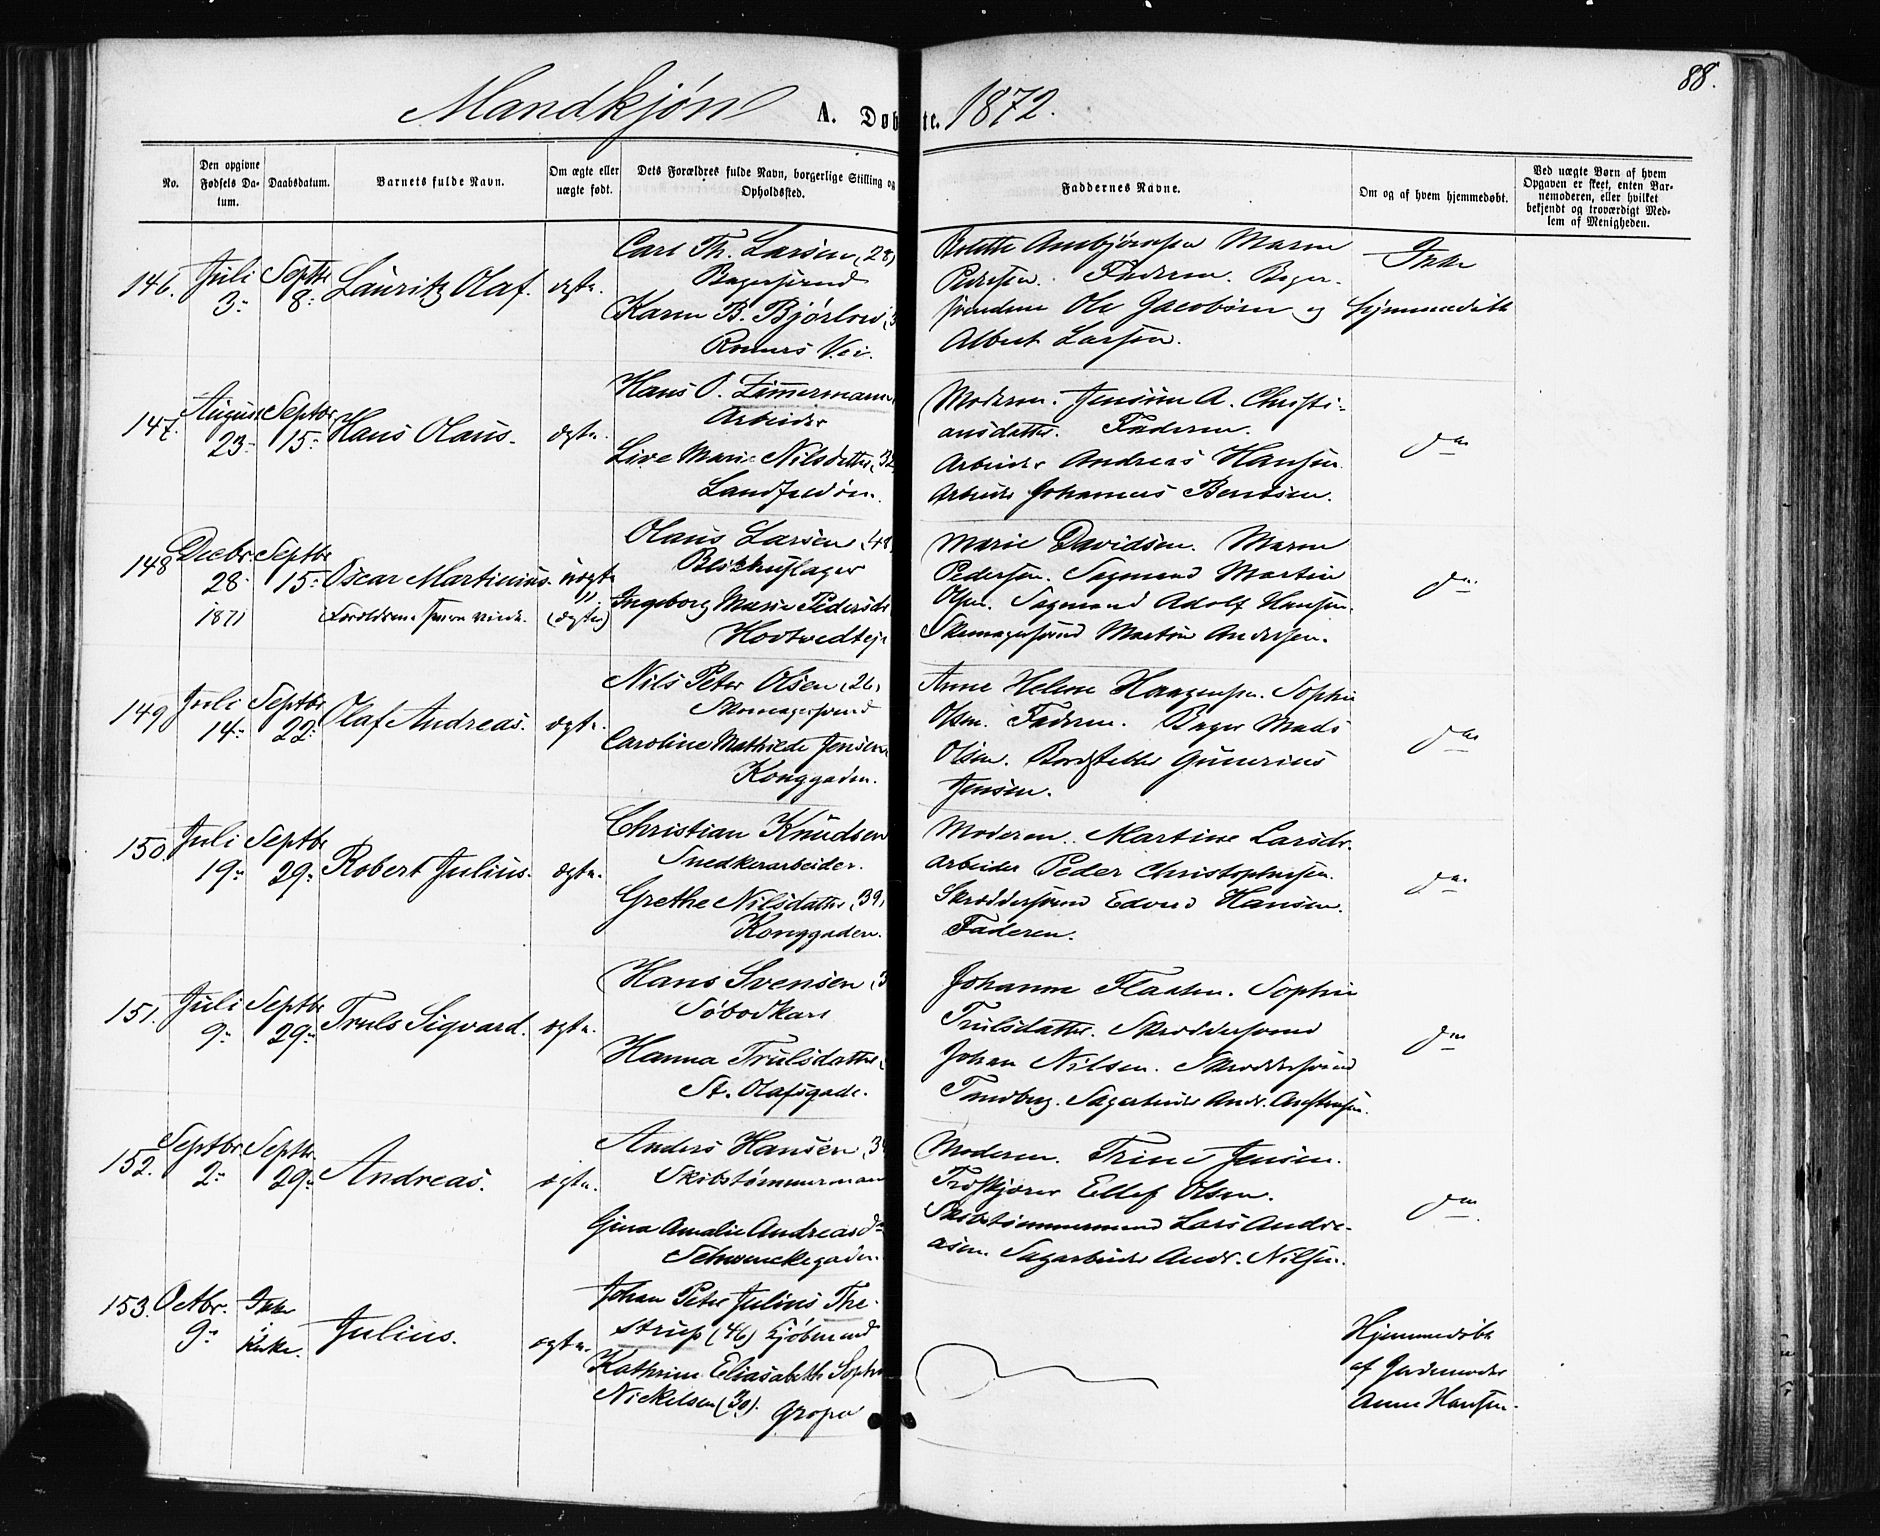 88.
Mandkjøn A. Døbte. 1872.
No.
Den opgivne Fødsels Datum.
Daabsdatum.
Barnets fulde Navn.
Om ægte eller uægte født.
Dets Forældres fulde Navn, borgerlige Stilling og Opholdssted.
Faddernes Navne.
Om og af hvem hjemmedøbt.
Ved uægte Børn af hvem Opgaven er skeet, enten Barnemoderen, eller hvilket bekjendt og troværdigt Medlem af Menigheden.
146. Juli 3. Septbr 8. Lauritz Olaf. ægte.
Carl Th. Larsen (28)
Bagersvend
Karen B. Bjørlow
Romers Vei.
Ambjørnsen Maren
Pedersen. Faderen. Bager-
svendene Ole Jacobsen og
Albert Larsen.
Ikke
hjemmedøbt
147. August 23. Septbr 15. Hans Olaus. ægte.
Hans O. Zimermann
Arbeider
Live Marie Nilsdatter (32
Landfaldøen.
Moderen. Jensine A. Christi-
ansdatter. Faderen.
Arbeider Andreas Hansen
Arbeider Johannes Bentsen.
do
148 Decbr. 28. 1871 Septbr 15. Oscar Martinius. uægte
(Forældrene senere viede. (ægte)
Olaus Larsen (48)
Blikkenslager
Ingeborg Marie Pedersdr
Hovtvedtejr
Marie Davidsen. Maren
Pedersen. Sagmand Martin
Olsen. Sagmand Adolf Hansen.
Skomagersvend Martin Andersen.
do
149 Juli 14. Septbr 22. Olaf Andreas. ægte.
Nils Peter Olsen (26)
Skomagersvend
Caroline Mathilde Jensen
Konggaden.
Anne Helene Haagensen. Sophie
Olsen. Faderen. Bager Mads
Olsen. Gunerius
Jensen.
do
150. Juli 19. Septbr 29. Robert Julius. ægte.
Christian Knudsen
Snedkerarbeider.
Grethe Nilsdatter (39)
Konggaden.
Moderen. Martine Larsdr.
arbeider Peder Christophersen.
Skræddersvend Edvard Hansen.
Faderen.
do
151. Juli 9. Septbr 29. Truls Sigvard. ægte.
Hans Svensen (3
Søbodkarl
Hanna Trulsdatter
St. Olafsgade.
Johanne Flaaten. Sophie
Trulsdatter. Skræddersvend
Johan Nilsen. Skræddersvend
Tandberg. Sagarbeider Andr.
do
152. Septbr. 2. Septbr. 29. Andreas. ægte.
Anders Hansen (34
Skibstømmermand
Gina Amalie Andreasdr
Schwenckegaden.
Moderen. Trine Jensen.
Ellef Olsen.
Skibstømmermand Lars Andre-
asen. Sagarbeider Andr. Nilsen.
do
153. Octbr. 9. Ikke i Kirke. Julius. ægte.
Johan Peter Julius The-
strup (46) Kjøbmand
Kathrine Eliasabeth Sophie
Nickelsen (30).
Hjemmedøbt
af Jordemoder
Anne Hansen.